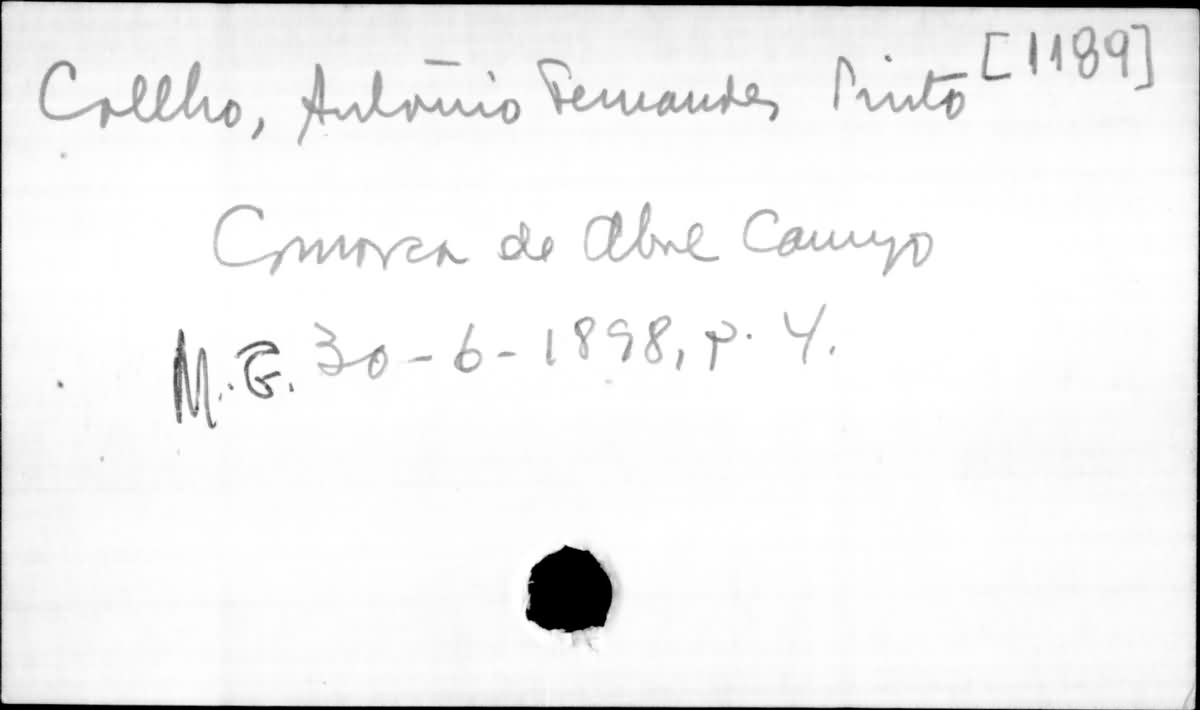 Coelho, Antônio Fernandes Pinto [1189]
Comarca de Abre Campo
M.G. 30-6-1898, p. 4.